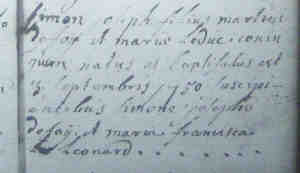 Simon joseph filius martini
defay et mariæ leduc conju
num natus et baptisatus est
3 septembris 1750 suscipi-
entibus simone josepho
defay et maria francisca
leonard